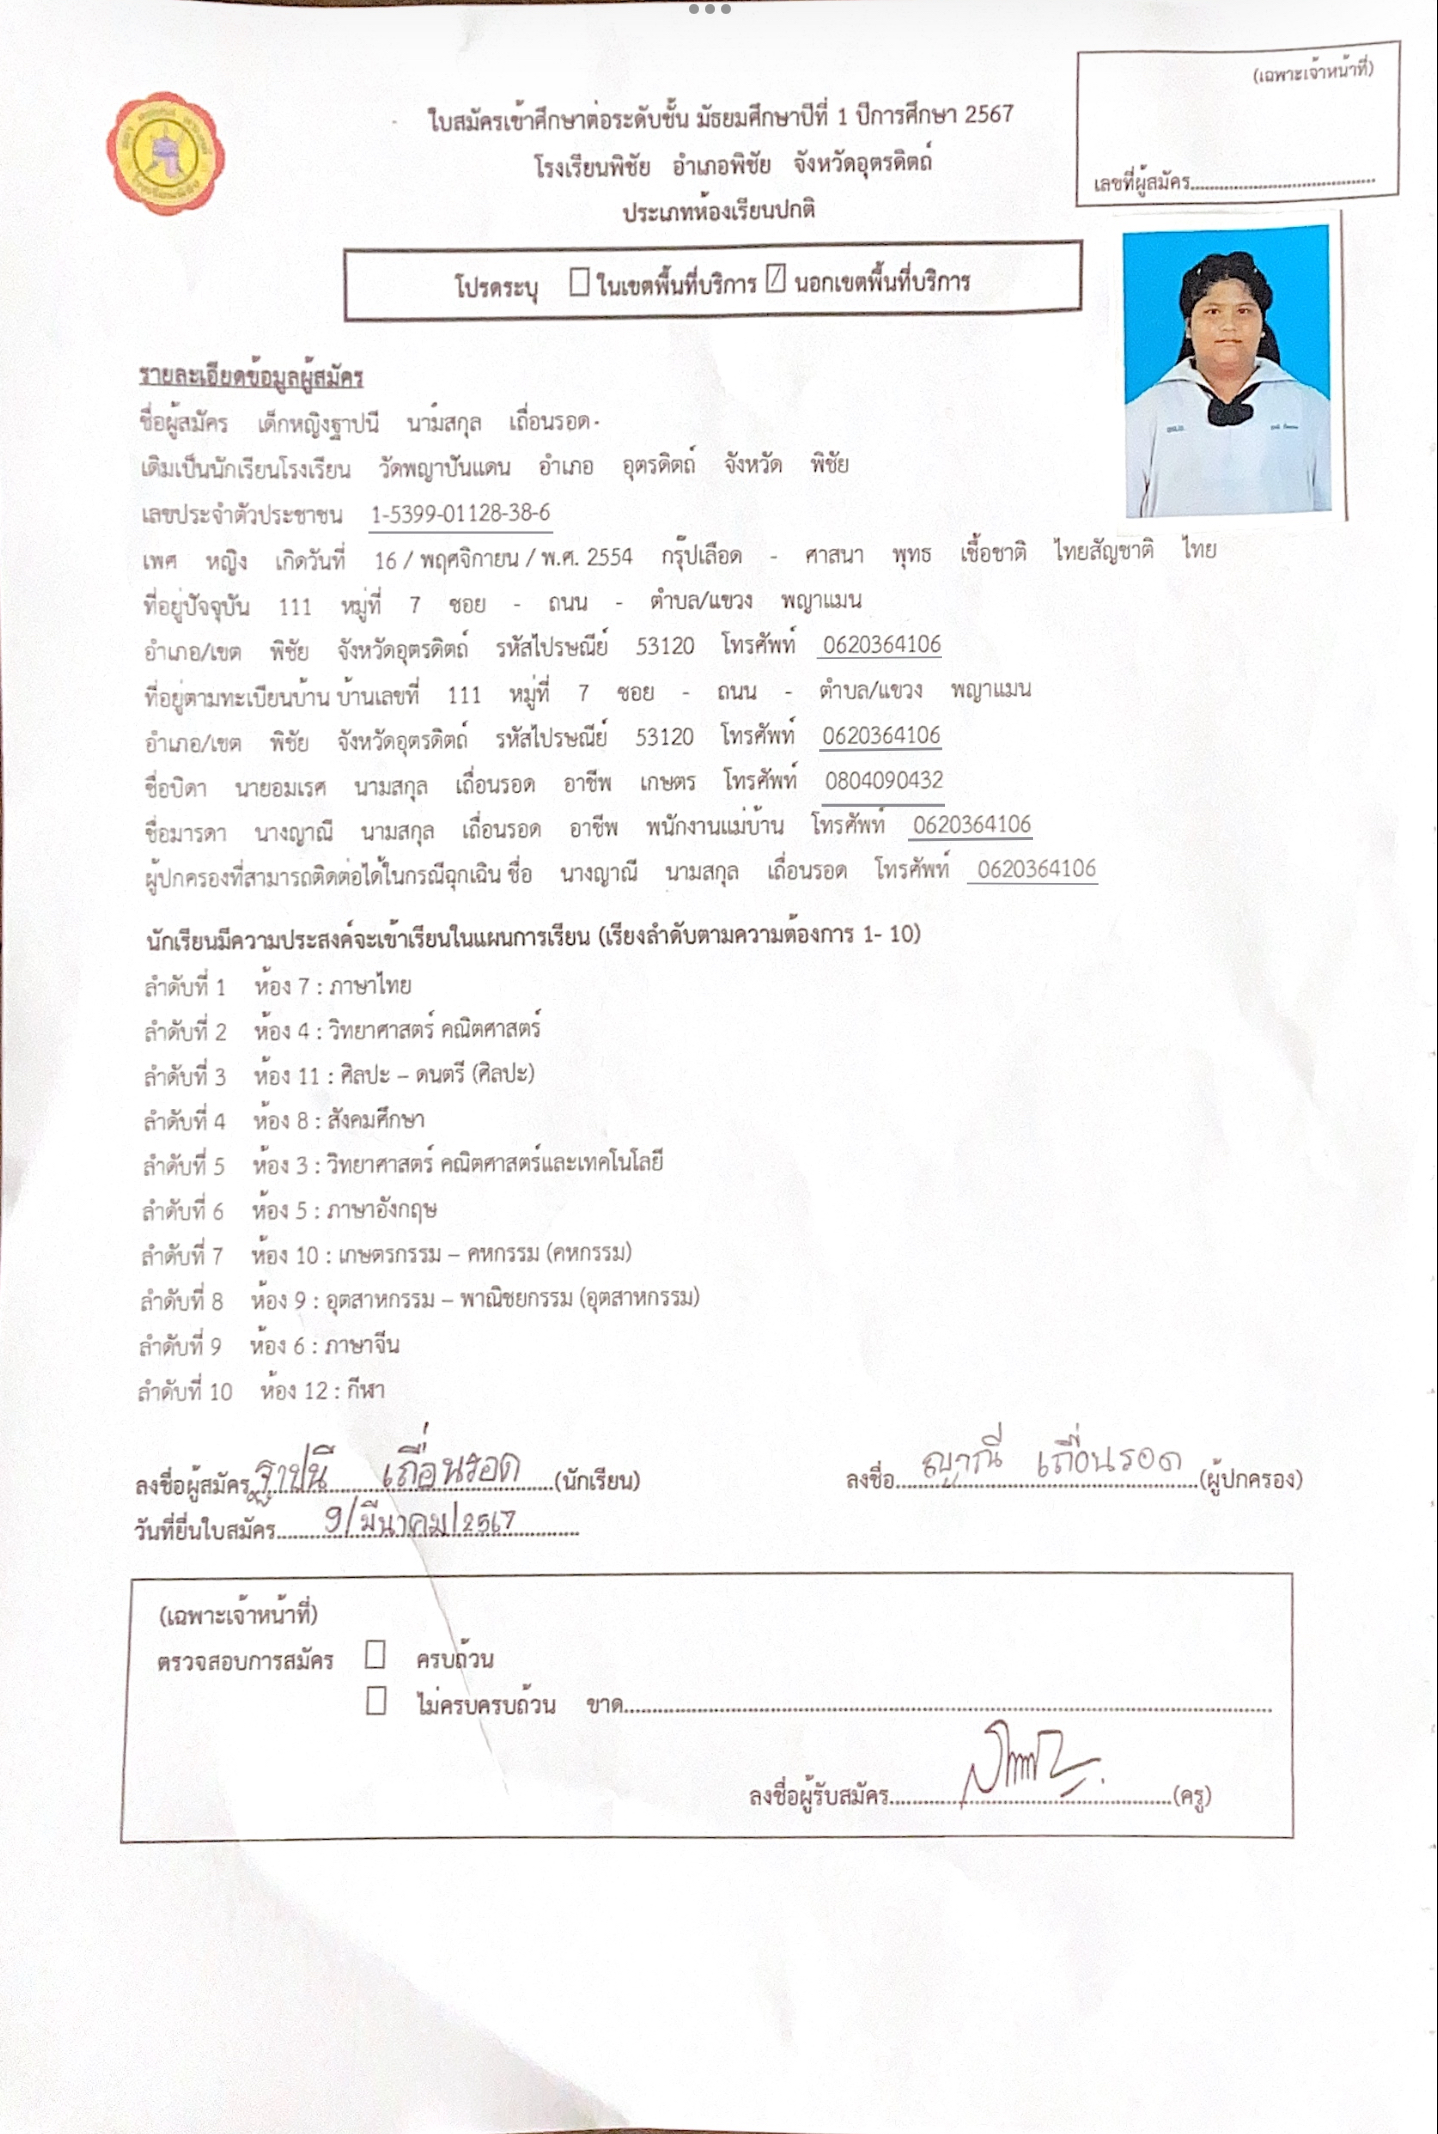 (เฉพาะเจ้าหน้าที่)
ใบสมัครเข้าศึกษาต่อระดับชั้น มัธยมศึกษาปีที่ 1 ปีการศึกษา 2567
โรงเรียนพิชัย อำเภอพิชัย จังหวัดอุตรดิตถ์
เลขที่ผู้สมัคร
ประเภทห้องเรียนปกติ
โปรดระบุ ☐ ในเขตพื้นที่บริการ ☑ นอกเขตพื้นที่บริการ
รายละเอียดข้อมูลผู้สมัคร
ชื่อผู้สมัคร เด็กหญิงฐาปนี นามสกุล เถื่อนรอด
เดิมเป็นนักเรียนโรงเรียน วัดพญาปันแดน อำเภอ อุตรดิตถ์ จังหวัด พิชัย
เลขประจำตัวประชาชน 1-5399-01128-38-6
เพศ หญิง เกิดวันที่ 16 / พฤศจิกายน / พ.ศ. 2554 กรุ๊ปเลือด - ศาสนา พุทธ เชื้อชาติ ไทยสัญชาติ ไทย
ที่อยู่ปัจจุบัน 111 หมู่ที่ 7 ซอย - ถนน - ตำบล/แขวง พญาแมน
อำเภอ/เขต พิชัย จังหวัดอุตรดิตถ์ รหัสไปรษณีย์ 53120 โทรศัพท์ 0620364106
ที่อยู่ตามทะเบียนบ้าน บ้านเลขที่ 111 หมู่ที่ 7 ซอย - ถนน - ตำบล/แขวง พญาแมน
อำเภอ/เขต พิชัย จังหวัดอุตรดิตถ์ รหัสไปรษณีย์ 53120 โทรศัพท์ 0620364106
ชื่อบิดา นายอมเรศ นามสกุล เถื่อนรอด อาชีพ เกษตร โทรศัพท์ 0804090432
ชื่อมารดา นางญาณี นามสกุล เถื่อนรอด อาชีพ พนักงานแม่บ้าน โทรศัพท์ 0620364106
ผู้ปกครองที่สามารถติดต่อได้ในกรณีฉุกเฉิน ชื่อ นางญาณี นามสกุล เถื่อนรอด โทรศัพท์ 0620364106
นักเรียนมีความประสงค์จะเข้าเรียนในแผนการเรียน (เรียงลำดับตามความต้องการ 1- 10)
ลำดับที่ 1 ห้อง 7 : ภาษาไทย
ลำดับที่ 2 ห้อง 4 : วิทยาศาสตร์ คณิตศาสตร์
ลำดับที่ 3 ห้อง 11 : ศิลปะ – ดนตรี (ศิลปะ)
ลำดับที่ 4 ห้อง 8 : สังคมศึกษา
ลำดับที่ 5 ห้อง 3 : วิทยาศาสตร์ คณิตศาสตร์และเทคโนโลยี
ลำดับที่ 6 ห้อง 5 : ภาษาอังกฤษ
ลำดับที่ 7 ห้อง 10 : เกษตรกรรม – คหกรรม (คหกรรม)
ลำดับที่ 8 ห้อง 9 : อุตสาหกรรม – พาณิชยกรรม (อุตสาหกรรม)
ลำดับที่ 9 ห้อง 6 : ภาษาจีน
ลำดับที่ 10 ห้อง 12 : กีฬา
ลงชื่อผู้สมัคร ฐาปนี เถื่อนรอด (นักเรียน) ลงชื่อ ญาณี เถื่อนรอด (ผู้ปกครอง)
วันที่ยื่นใบสมัคร 9/มีนาคม/2567
(เฉพาะเจ้าหน้าที่)
ตรวจสอบการสมัคร ☐ ครบถ้วน
☐ ไม่ครบครบถ้วน ขาด
ลงชื่อผู้รับสมัคร (ครู)